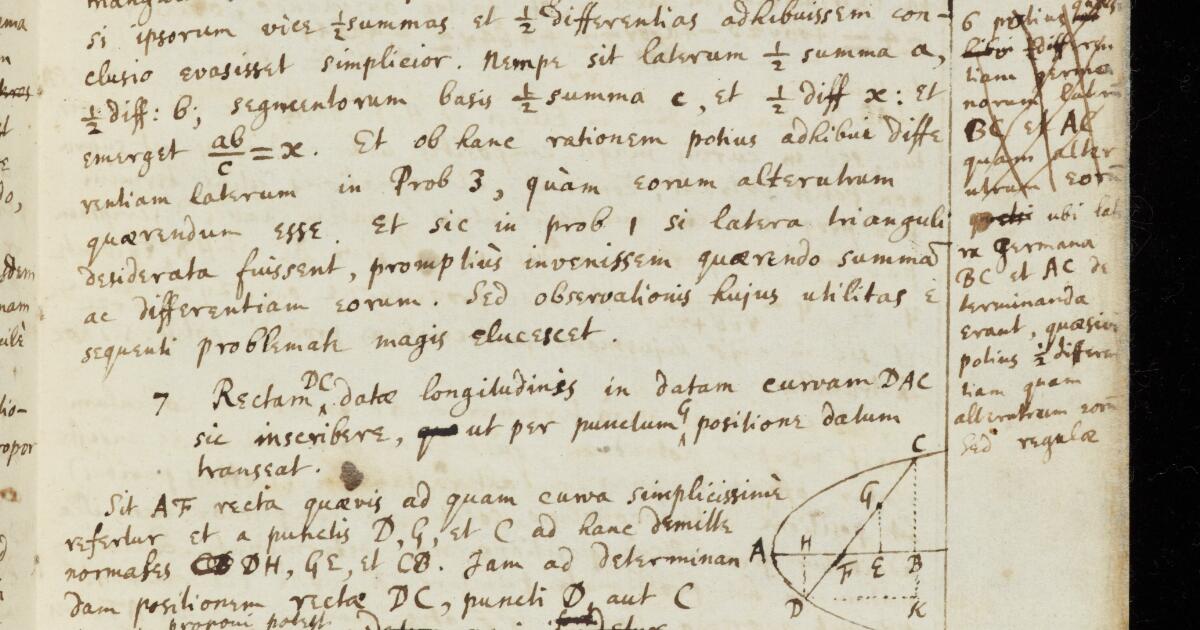 si ipsorum vice ½ summas et ½ differentias adhibuissem con-
clusio evasisset simplicior. Nempe sit laterum ½ summa a,
½ diff: b; segmentorum basis ½ summa c, et ½ diff x: Et
emerget ab/c = x. Et ob hanc rationem potius adhibui diffe
rentiam laterum in Prob 3, quàm eorum alterutrum
quærendum esse. Et sic in prob 1 si latera trianguli
desiderata fuissent, promptiùs invenissem quærendo summã
ac differentiam eorum. Sed observationis hujus utilitas e
sequenti problemate magis elucescet.
7 Rectam DC datæ longitudinis in datam curvam DAC
sic inscribere, ut per punctum G positione datum
transeat.
Sit AF recta quævis ad quam curva simplicissimè
refertur et a punctis D, G, et C ad hanc demitte
normales DH, GE, et CB. Jam ad determinan
dam positionem rectæ DC, puncti D aut C
6 potius
differen
tiam germa
norum late
BC et AC
quam alter
utrum eorũ
ubi late
ra germana
BC et AC de
terminanda
erant, quæsivi
potius ½ differen
tiam quam
alterutrum eorũ
Sed regulæ
C
G
A H F E B
D K